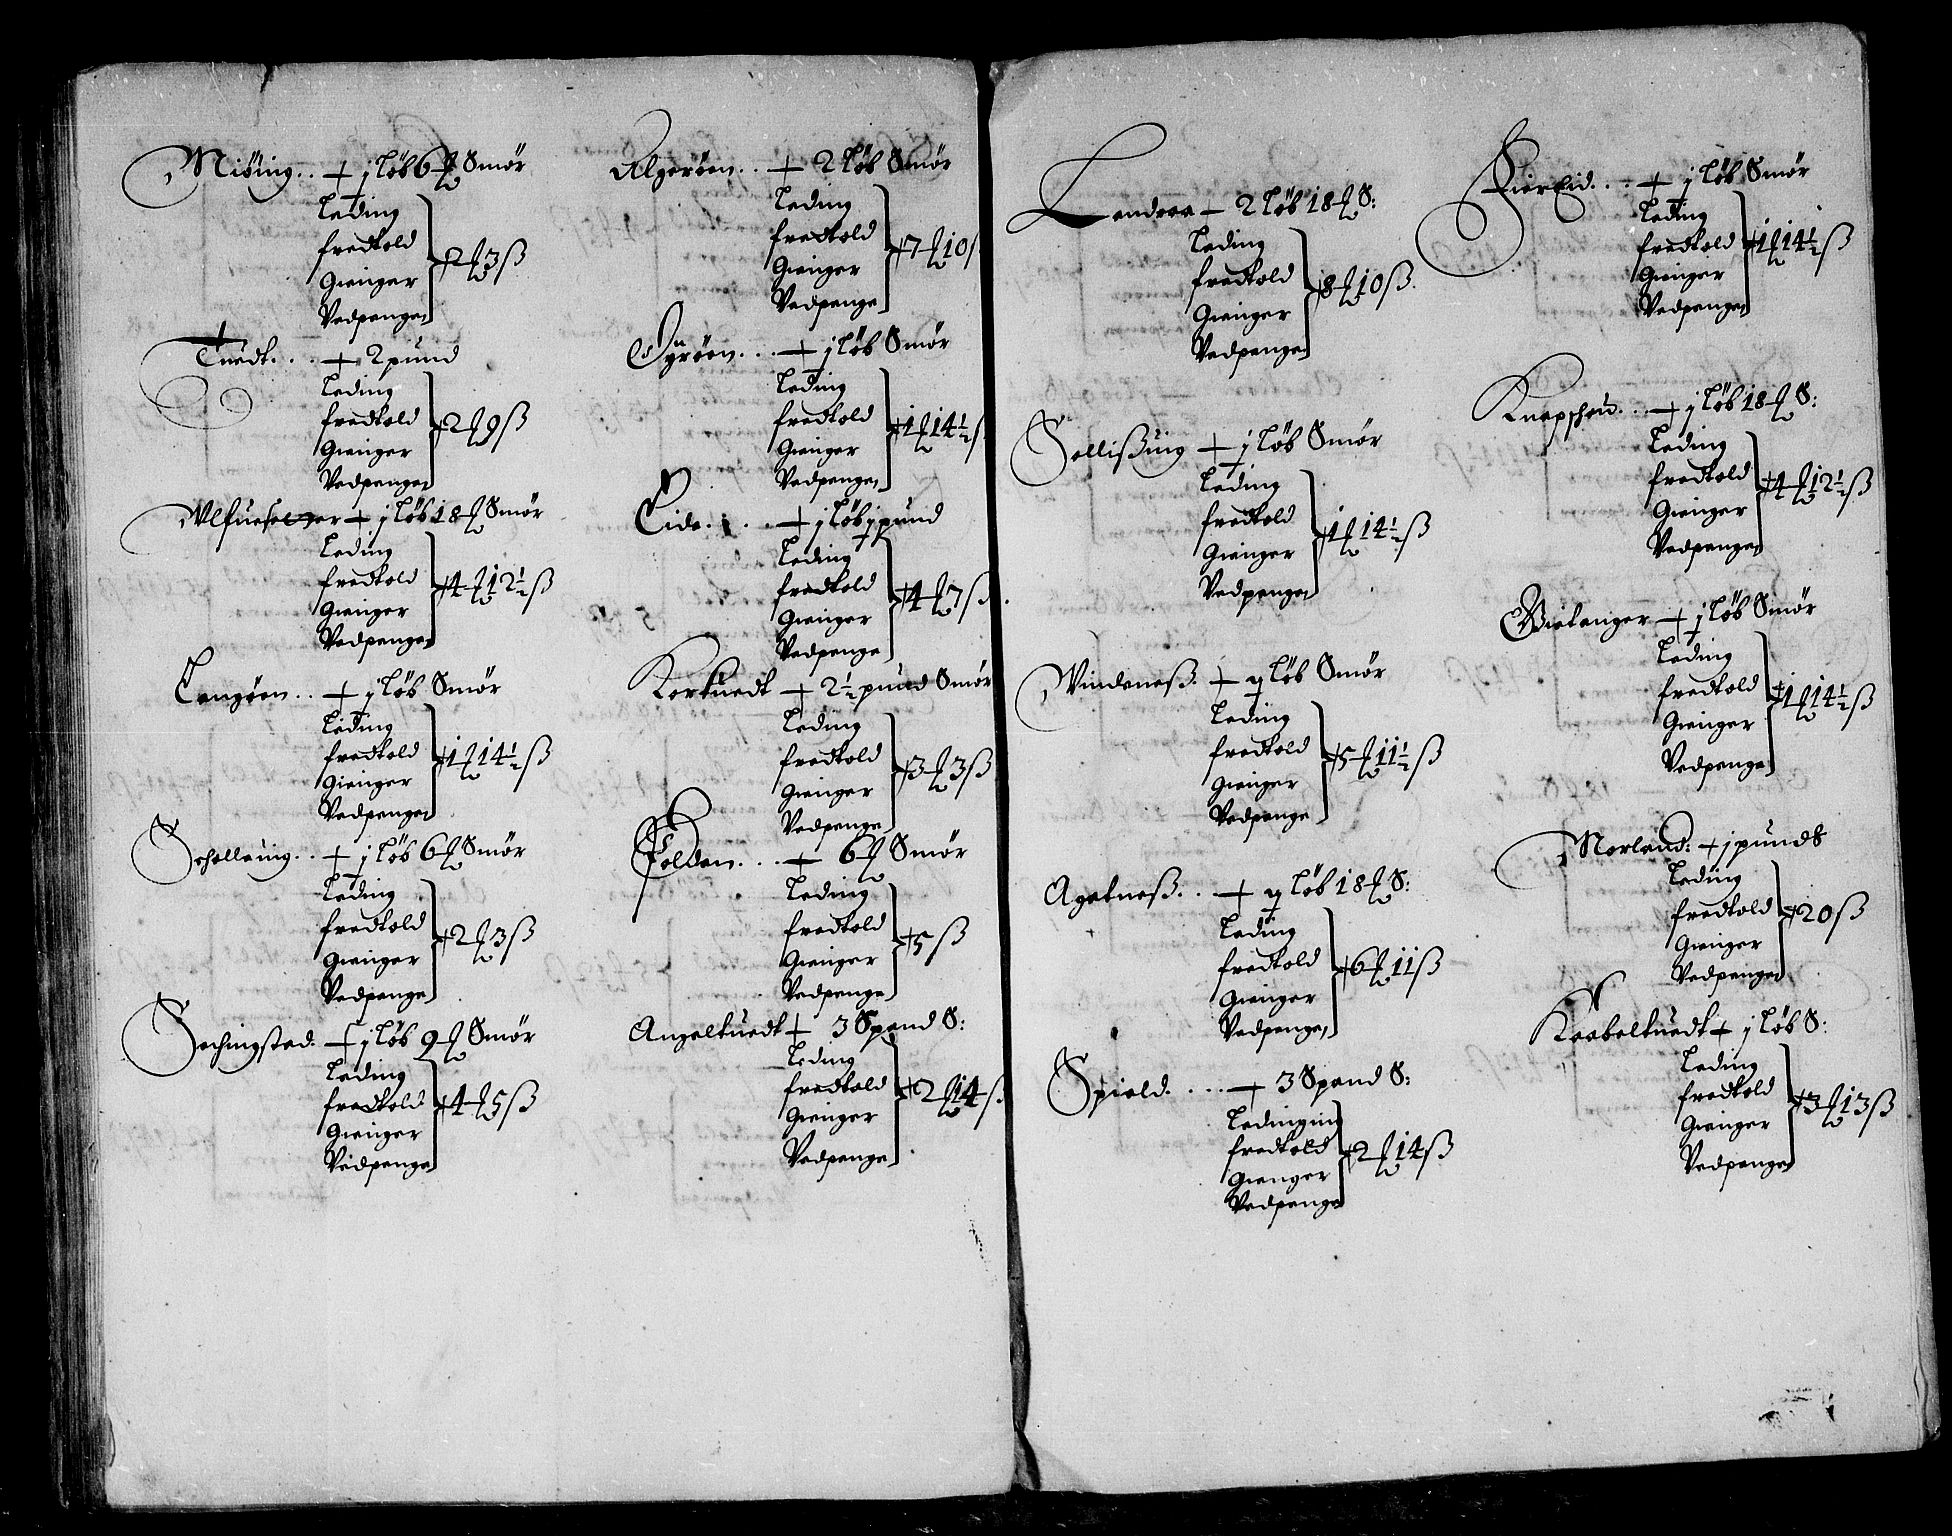 Miöing . . j Löb 6 ℔ Smör
Leding
fredtold
Gienger
Vedpenge
2 ℔ 3 ß
Tuedt . . . 2 pund
Leding
fredtold
Gienger
Vedpenge
2 ℔ 9 ß
j Löb 18 ℔ Smör
Leding
fredtold
Gienger
Vedpenge
4 ℔ 12½ ß
Langöen . . j Löb Smör
Leding
fredtold
Gienger
Vedpenge
1 ℔ 14½ ß
Schelluig . . j Löb 6 ℔ Smör
Leding
fredtold
Gienger
Vedpenge
2 ℔ 3 ß
Sechingstad . j Löb 9 ℔ Smör
Leding
fredtold
Gienger
Vedpenge
4 ℔ 5 ß
Algeröen . . 2 Löb Smör
Leding
fredtold
Gienger
Vedpenge
7 ℔ 10 ß
Öÿröen . . . j Löb Smör
Leding
fredtold
Gienger
Vedpenge
1 ℔ 14½ ß
Eide . . . j Löb j pund
Leding
fredtold
Gienger
Vedpenge
4 ℔ 7 ß
Kortuedt 2½ pund Smör
Leding
fredtold
Gienger
Vedpenge
3 ℔ 3 ß
Folden . . . 6 ℔ Smör
Leding
fredtold
Gienger
Vedpenge
5 ß
Angeltuedt 3 Spand S:
Leding
fredtold
Gienger
Vedpenge
2 ℔ 14 ß
Landraa 2 Löb 18 ℔ S:
Leding
fredtold
Gienger
Vedpenge
8 ℔ 10 ß
j Löb Smör
Leding
fredtold
Gienger
Vedpenge
1 ℔ 14½ ß
Vindeneß . ij Löb Smör
Leding
fredtold
Gienger
Vedpenge
5 ℔ 11½ ß
Agatneß . . ij Löb 18 ℔ S:
Leding
fredtold
Gienger
Vedpenge
6 ℔ 11 ß
Spield . . . 3 Spand S:
Leding
fredtold
Gienger
Vedpenge
2 ℔ 14 ß
FierEid . . . j Löb Smör
Leding
fredtold
Gienger
Vedpenge
1 ℔ 14½ ß
Knapschou . . j Löb 18 ℔ S:
Leding
fredtold
Gienger
Vedpenge
4 ℔ 12½ ß
Bielanger j Löb Smör
Leding
fredtold
Gienger
Vedpenge
1 ℔ 14½ ß
Morland: j pund S
Leding
fredtold
Gienger
Vedpenge
20 ß
Kaabeltuedt j Löb S:
Leding
fredtold
Gienger
Vedpenge
3 ℔ 13 ß